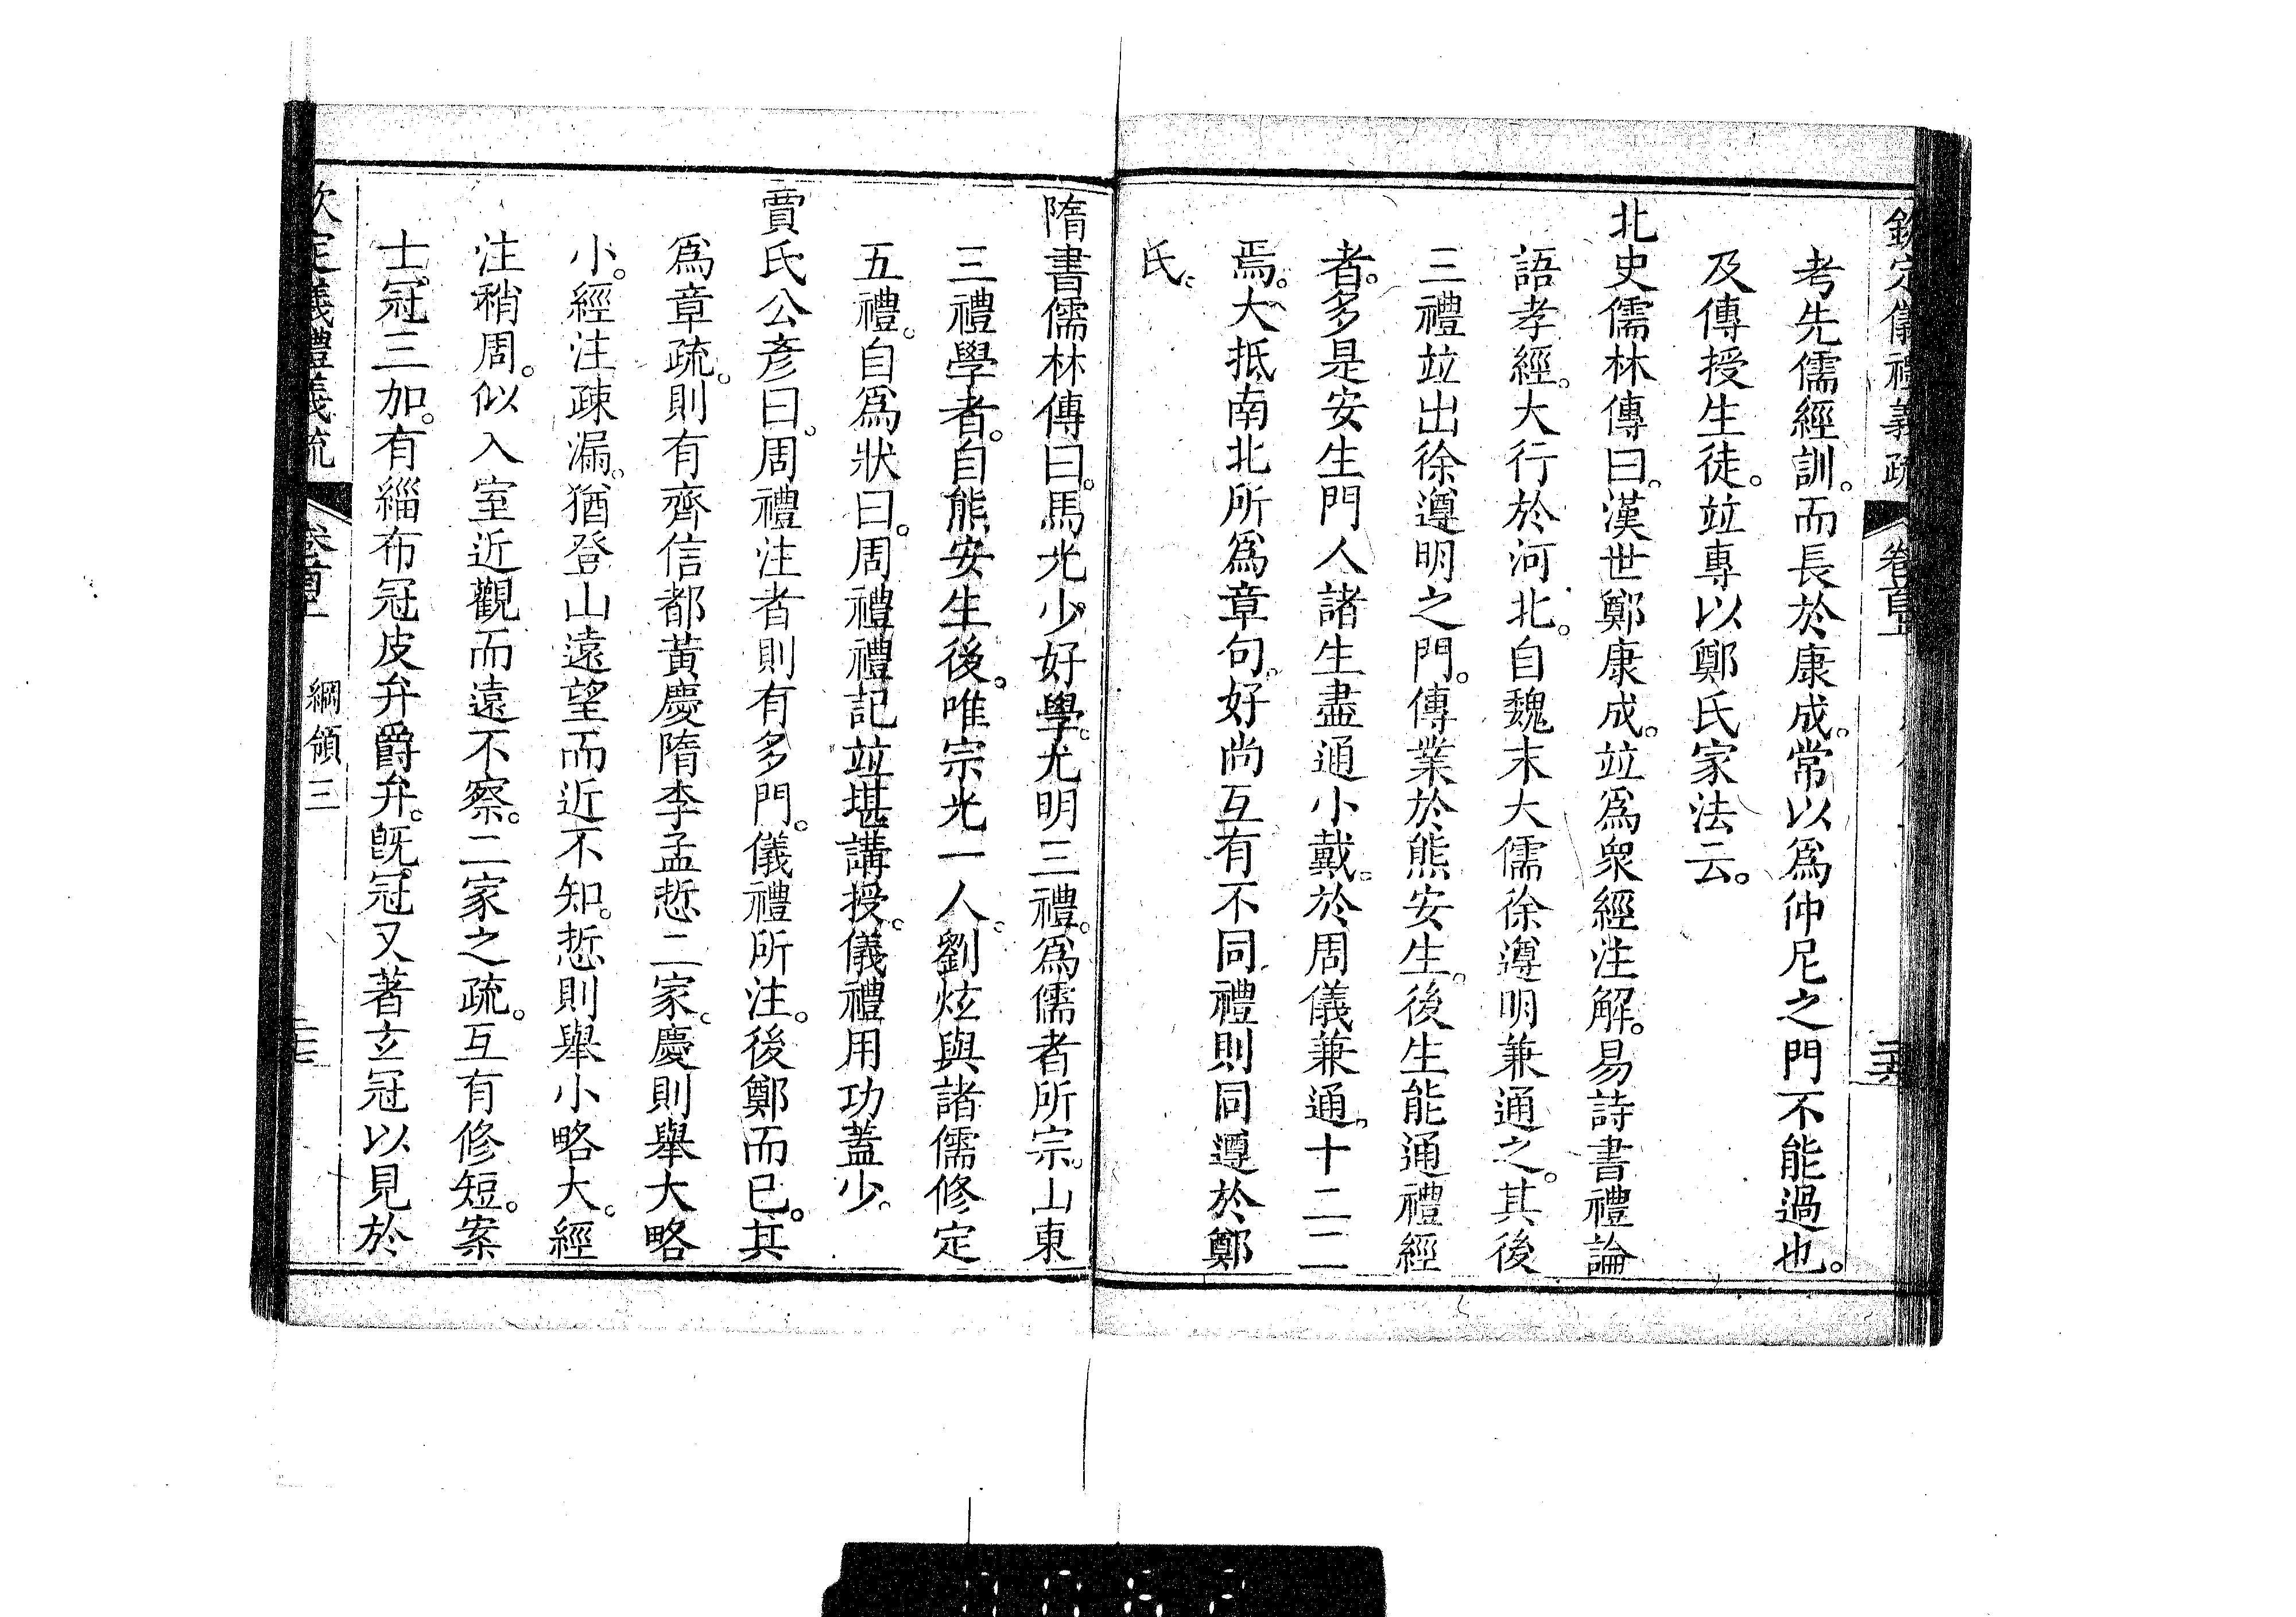 欽定儀禮義疏 卷首上 二六
考先儒經訓。而長於康成。常以爲仲尼之門不能過也。
及傳授生徒。竝專以鄭氏家法云。
北史儒林傳曰。漢世鄭康成。竝爲衆經注解。易詩書禮論
語孝經。大行於河北。自魏末大儒徐遵明兼通之。其後
三禮竝出徐遵明之門。傳業於熊安生。後生能通禮經
者。多是安生門人諸生盡通小戴。於周儀兼通。十二二
焉。大抵南北所爲章句。好尚互有不同禮則同遵於鄭
氏。
隋書儒林傳曰。馬光少好學。尤明三禮。爲儒者所宗。山東
三禮學者。自熊安生後。唯宗光一人。劉炫與諸儒修定
五禮。自爲狀曰。周禮禮記竝堪講授。儀禮用功蓋少。
賈氏公彥曰。周禮注者則有多門。儀禮所注。後鄭而已。其
爲章疏。則有齊信都黃慶隋李孟悊二家。慶則舉大略
小。經注疎漏。猶登山遠望而近不知。悊則舉小略大。經
注稍周。似入室近觀而遠不察。二家之疏。互有修短。案
士冠三加。有緇布冠皮弁爵弁。旣冠又著玄冠以見於
欽定儀禮義疏 卷首上 綱領三 二七